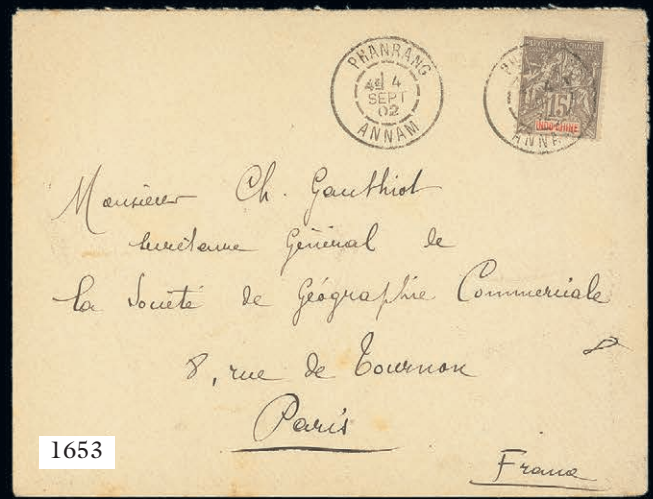 PHANRANG
4
SEPT
02
ANNAM
RÉPUBLIQUE FRANÇAISE
15
INDO-CHINE
PH
ANNA
Monsieur Ch. Gauthiot
Secrétaire Général de
la Société de Géographie Commerciale
8, rue de Tournon
Paris
France
1653